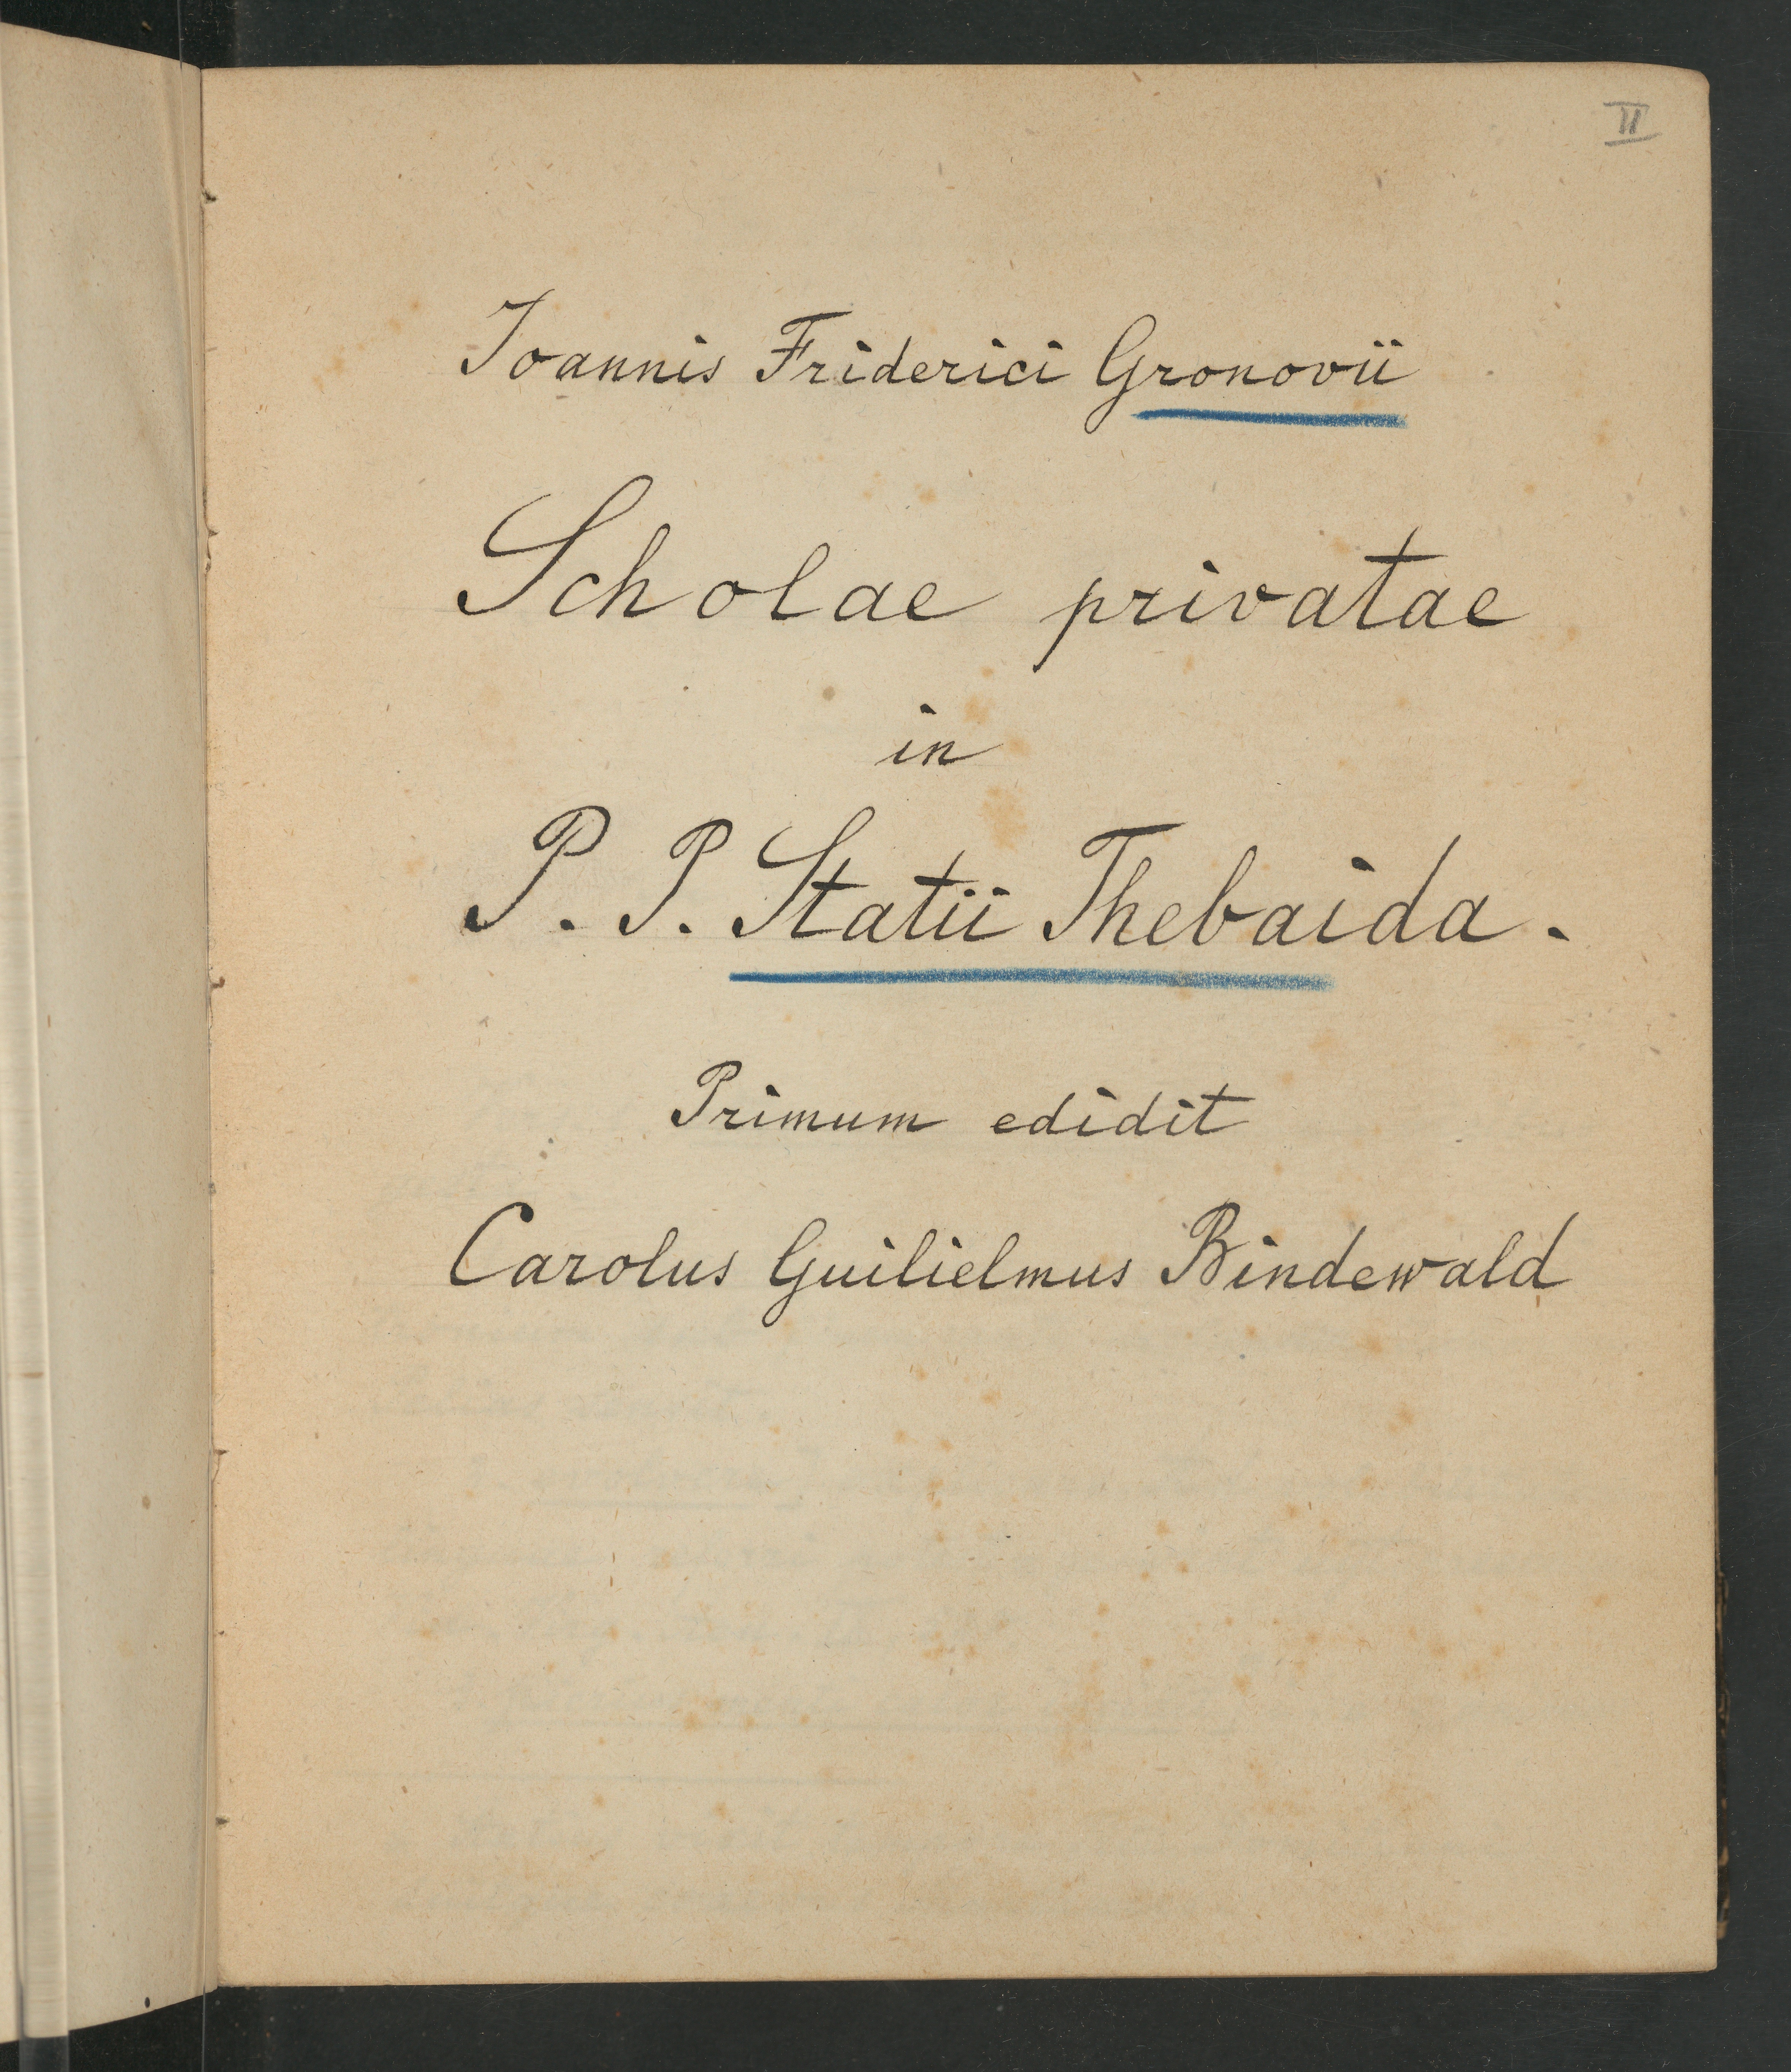 II
Ioannis Friderici Gronovii
Scholae privatae
in
P. P. Statii Thebaida.
Primum edidit
Carolus Guilielmus Bindewald